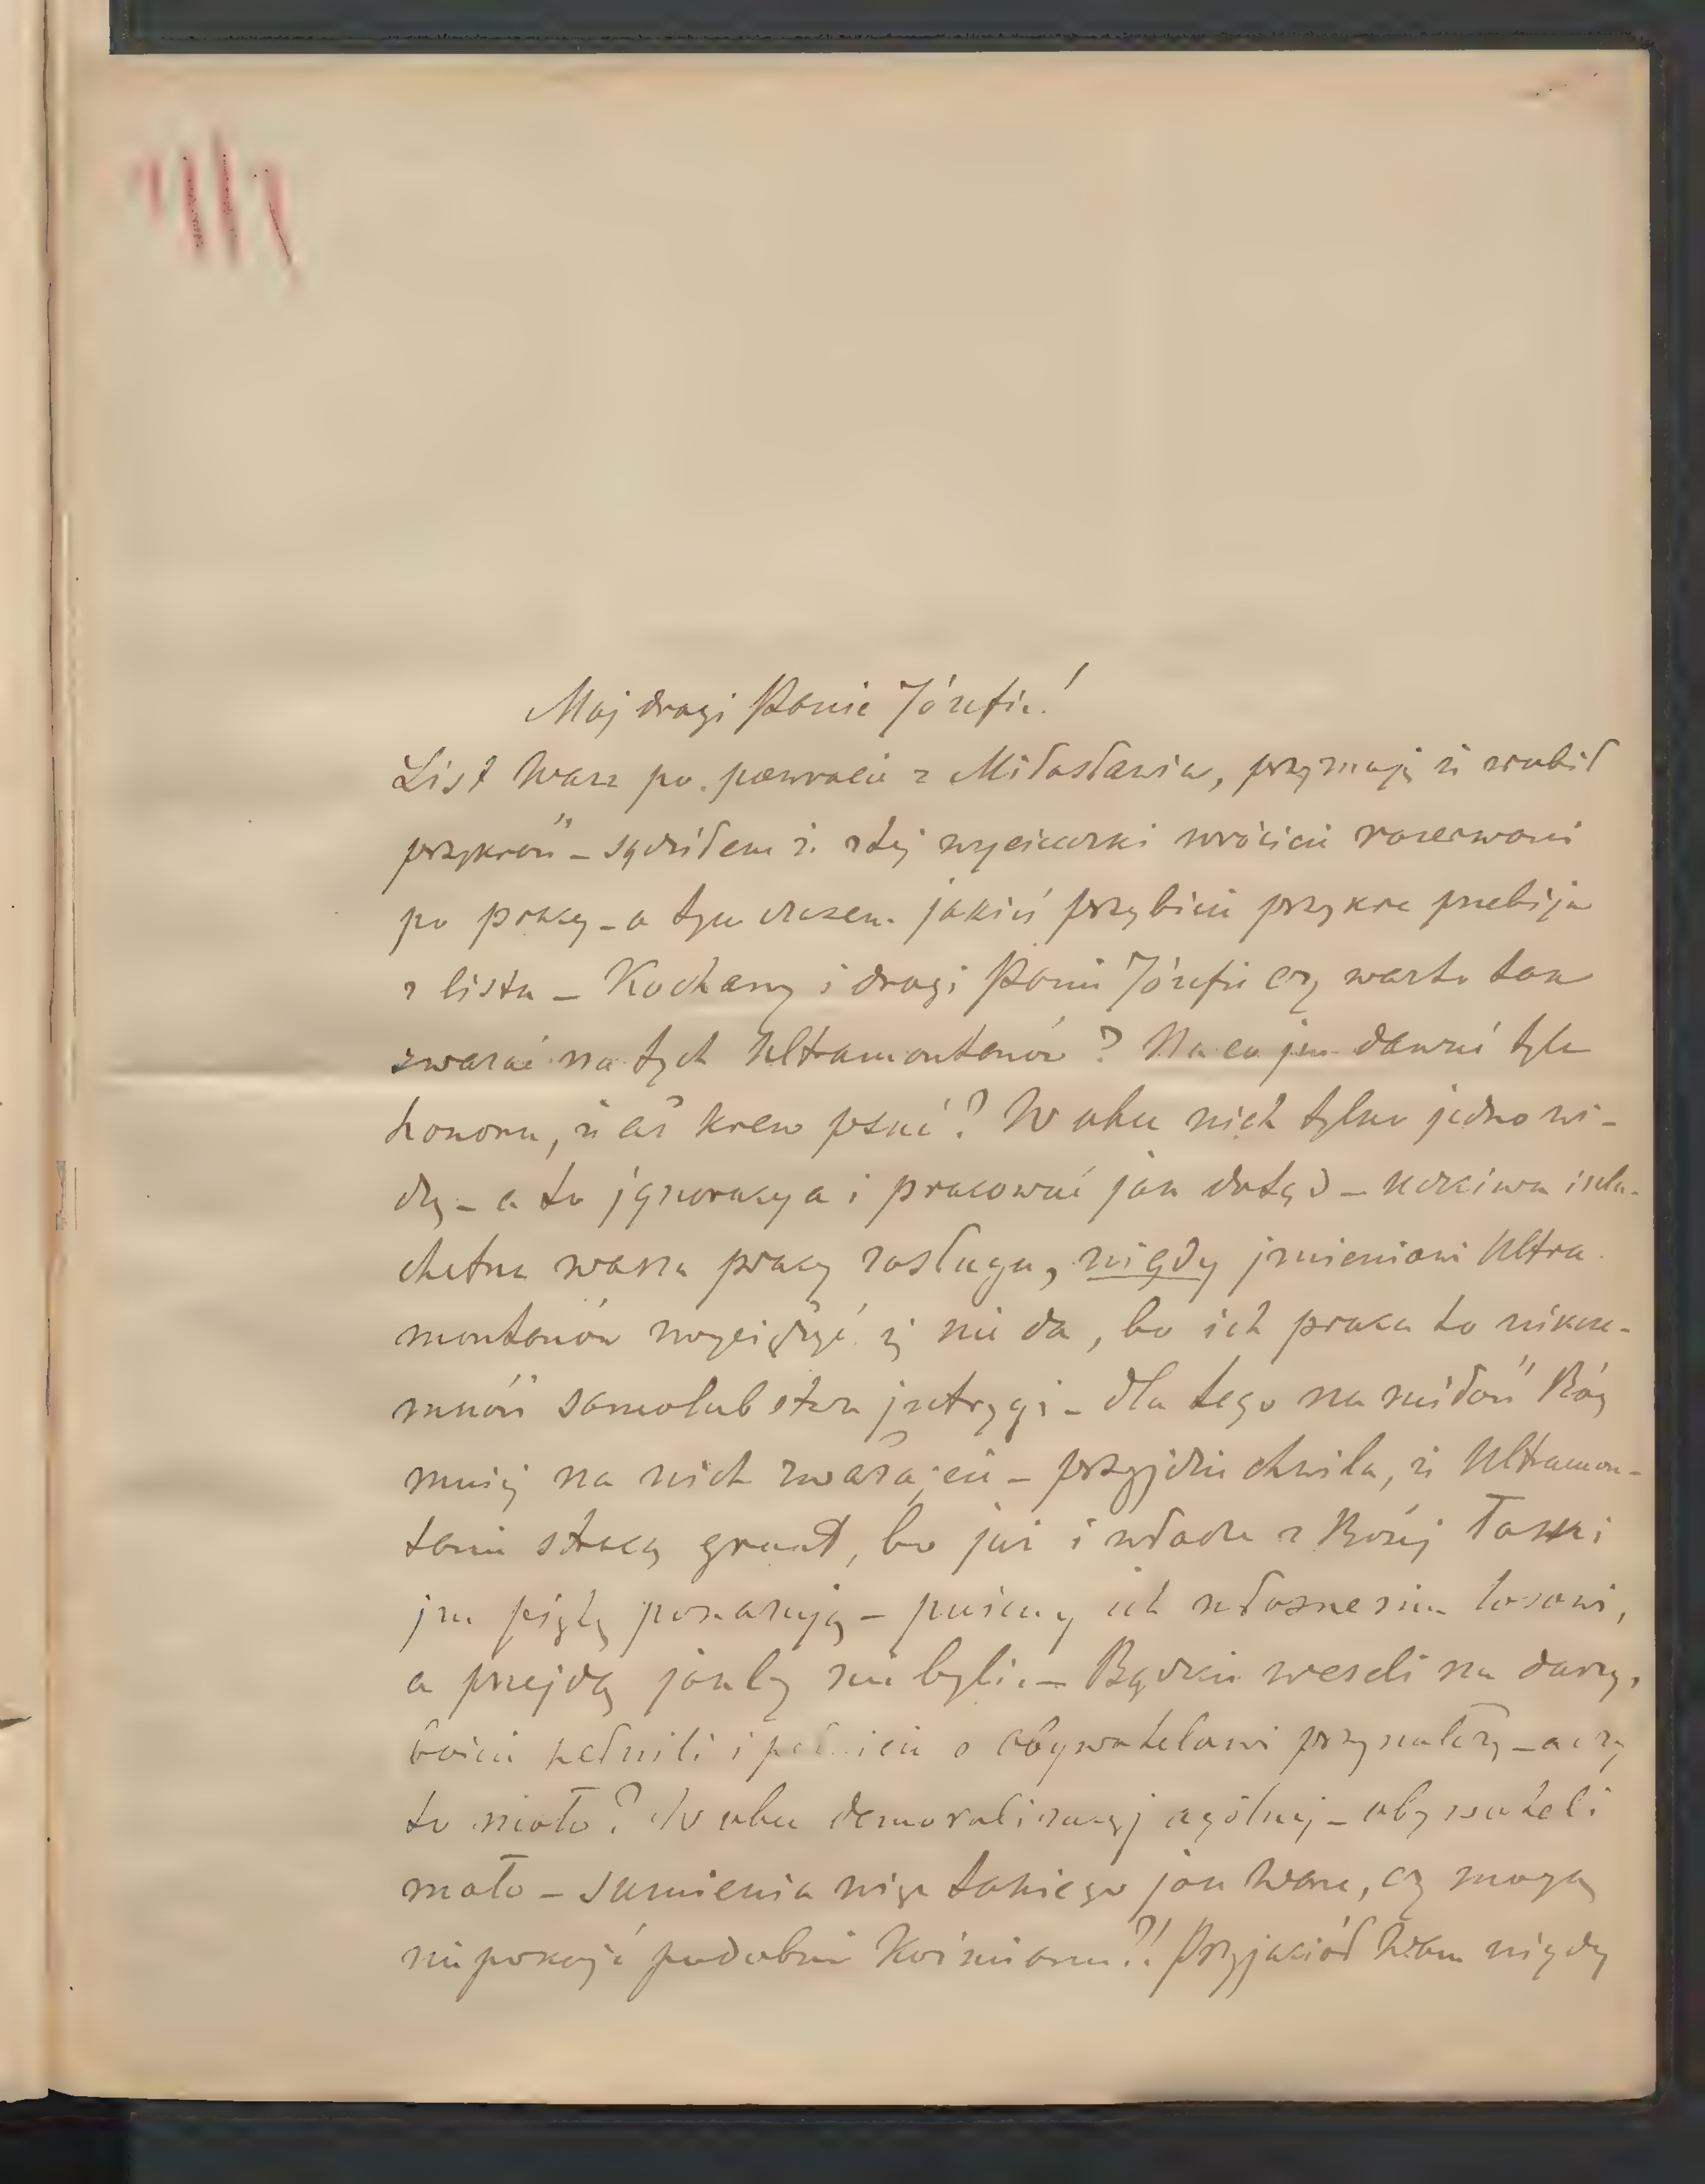 Mój drogi Panie Józefie!
List Wasz po powrocie z Miłosławia, przyznaję że zrobił
przykrość – sądziłem że z tej wycieczki wrócicie rozerwani
po pracy – a tym czasem jakieś przybicie przykre przebija
z listu – Kochany i drogi Panie Józefie czy warto tak
zważać na tych Ultramontanów? Na co jm dawać tyle
honoru, że aż krew psuć? W obec nich tylko jedno wi-
dzę – a to jgnoracya i pracować jak dotąd – uczciwa i szla-
chetna wasza pracy zasługa, nigdy jmieniowi Ultra-
montanów się nie da, bo ich praca to nikcze-
mność samolubstwa jntrygi – dla tego na miłość Bógą
mniej na nich zważajcie – przyjdzie chwila, że Ultramon-
tanie stracą grunt, bo już i władze z Bożej Łaski
jm piętę pokazują – puśćmy ich własnemu losowi,
a przejdą jakby nie byli. – Bądźcie weseli na duszy,
boście pełnili i pełnicie o obywatelowi przynależy – a czy
to mało? W obec demoralizacyj ogólnej – obywateli
mało – sumienia więc takiego jak Wasze, czy mogą
niepokoić podobni Koźmianu?! Przyjaciół Wam nigdy